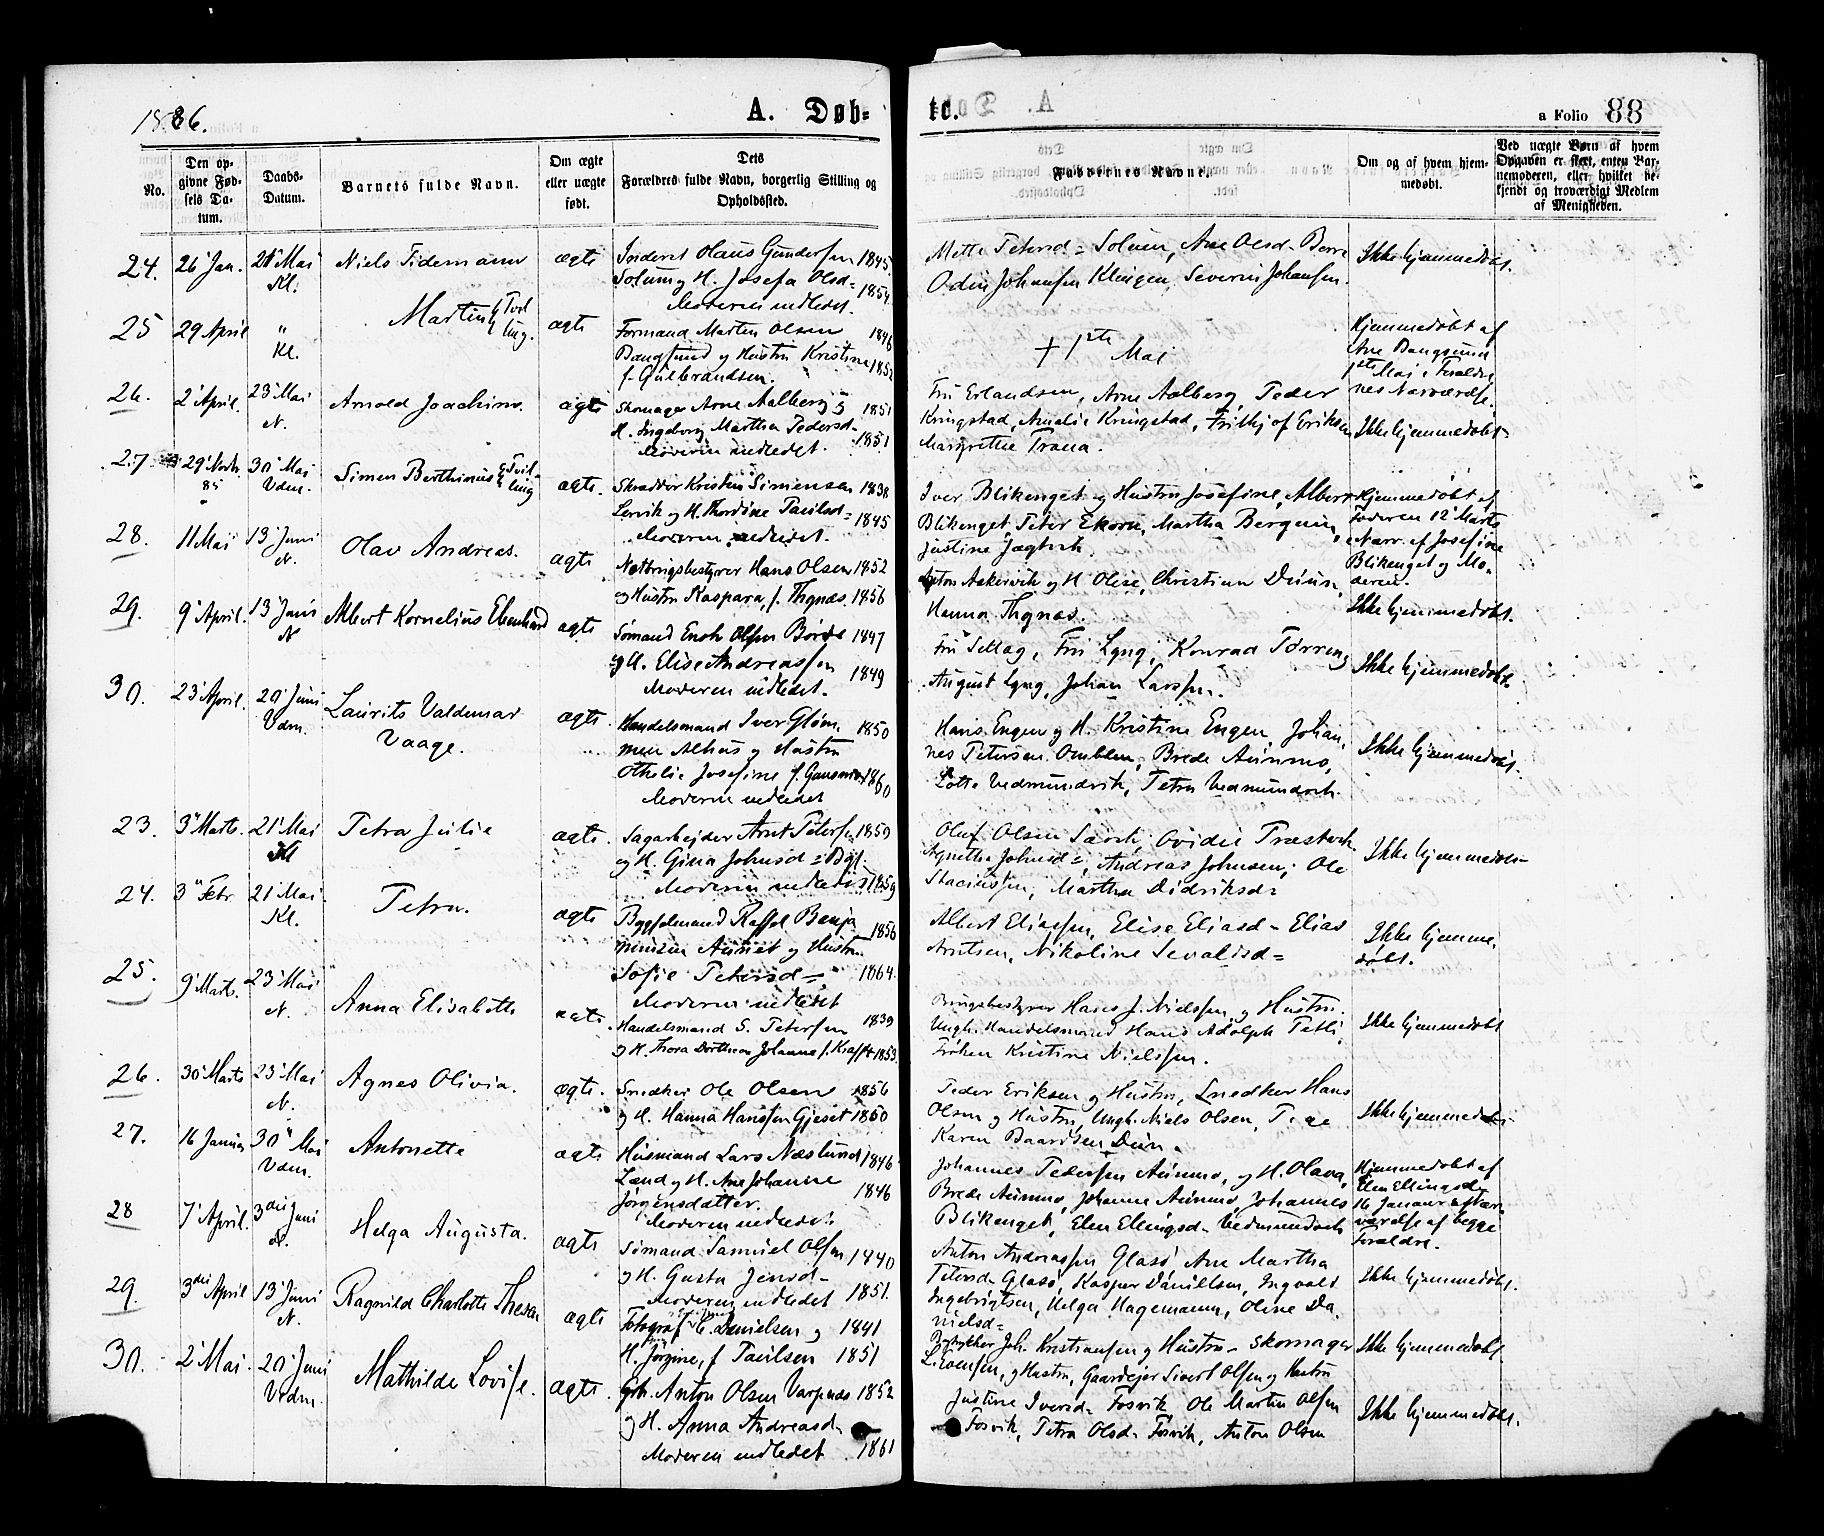 1886.
A. Døb=
te.
a Folio 88
No.
Den op-
givne Fød-
sels Da-
tum.
Daabs-
Datum.
Barnets fulde Navn.
Om ægte
eller uægte
født.
Dets
Forældres fulde Navn, borgerlig Stilling og
Opholdssted.
Faddernes Navne.
Om og af hvem hjem-
medøbt.
Ved uægte Børn af hvem
Opgaven er skeet, enten Bar-
nemoderen, eller hvilket be-
kjendt og troværdigt Medlem
af Menigheden.
24. 26 Jan. 21 Mai Kl. Niels Tidemann ægte
Inderst Olaus Gundersen 1845
Solum og H. Josefa Olsd= 1854
Moderen indledet.
Mette Petersd= Solum, Ane Olsd=
Odin Johansen Klingen, Severin Johansen.
Ikke hjemmedøbt.
25 29 April " Kl. Martin Tvilling. ægte
Formand Martin Olsen 1846
Bangsund og Hustru Kristine 1852
f. Gulbrandsen.
+ 1ste Mai
Hjemmedøbt af
Ane Bangsund
1ste Mai i Foraldre
nes Nærværelse.
26. 2 April. 23 Mai N. Arnold Joachim. ægte
Skomager Arne Aalberg og 1851
H. Ingeborg Martha Pedersd= 1851
Moderen indledet.
Fru Erlandsen, Arne Aalberg, Peder
Kringstad, Amalie Kringstad, Frithjof Eriksen
Margrethe Trana.
Ikke hjemmedøbt
27 29 Novbr. 85 30 Mai Vdm. Simon Berthinus Tvilling ægte.
Skrædder Kristen Simonsen 1838
Lervik og H. Thordine Paulsd= 1845
Moderen indledet.
Iver Blikenget og Hustru Josefine, Albert
Blikenget, Peter Ekorn, Martha Bergum,
Justine Jægtvik
Hjemmedøbt af
Faderen 12 Marts
i Nærv. af Josefine
Blikenget og Mo-
deren.
28. 11 Mai 13 Juni N. Olav Andreas. ægte
Hans Olsen 1852
og Hustru Kaspara, f. Thgnæs. 1856
Anton Askervik og H. Oline, Christian Duun,
Hanna Thgnæs.
Ikke hjemmedøbt.
29. 9 April. 13 Juni N Albert Kornelius Edenhard ægte
Sømand Enok Olsen Børde 1847
og H. Elise Andreassen 1849
Moderen indledet.
Fru Sellæg, Fru Lyng, Konrad Tørring
August Lyng, Johan Larssen.
Ikke hjemmedøbt.
30. 23 April. 20 Juni Vdm. Laurits Valdemar
Vaage. ægte.
Handelsmand Iver Gløm= 1850
men Alhus og Hustru
Othelie Josefine f. 1860
Moderen indledet
Hans Engen og H. Kristine Engen, Johan-
nes Petersen Omblen, Brede Aunmo,
Lotte Vedmundvik, Petra Vedmundvik.
Ikke hjemmedøbt.
23. 3 Marts. 21 Mai Kl Petra Julie ægte.
Sagarbejder Arnt Petersen 1859
og H. Gina Johnsd=
Moderen indledet 1859
Oluf Olsen Ovidie Præstvik
Agnetha Johnsd=, Andreas Johnsen, Ole
Staciussen, Martha Didriksd=
Ikke hjemmedøbt
24. 3 Febr. 21 Mai Kl. Petra. ægte
Bygselmand Raffel Benja 1856
minsen Aunet og Hustru
Sofie Petersd= 1864.
Moderen indledet
Albert Eliassen, Elise Eliasd= Elias
Arntsen, Nikoline Sevaldsd=
Ikke hjemme-
døbt.
25. 9 Marts. 23 Mai N. Anna Elisabeth ægte.
Handelsmand S. Petersen 1839
og H. Thora Dorthea Johanne f. Krafft 1853
Brugsbestyrer Hans J. Nielssen og Hustru.
Ungk. Handelsmand Hans Adolph
Frøken Kristine Nielssen.
Ikke hjemmedøbt
26. 30 Marts 23 Mai N. Agnes Olivia. ægte.
Snedker Ole Olsen 1856
og H. Hanna Hansen Gjeset 1850
Peder Eriksen og Hustru, Snedker Hans
Olsen og Hustru, Ungk. Niels Olsen,
Karen Baardsen Duun.
Ikke hjemmedøbt
27. 16 Januar 30 Mai Vdm. Antonette ægte
Husmand Lars Næslund 1846
Land og H. Ane Johanne 1846
Jørgensdatter.
Moderen indledet
Johannes Pedersen Aunmo, og H. Olava,
Brede Aunmo, Johanne Aunmo, Johannes
Blikenget, Elen Ellingsd= Vedmundvik
Hjemmedøbt af
Elen Ellingsd=
16 Januar i Nær-
værelse af begge
Foraldre.
28 7 April. 3die Juni N. Helga Augusta. ægte
Sømand Samuel Olsen 1840
og H. Gusta Jensd= 1851.
Moderen indledet
Anton Andreassen Glasø, Ane Martha
Petersd= Glasø, Kasper Danielsen, Ingvald
Ingebrigtsen, Helga Hagemann, Oline Da
nielsd=
Ikke hjemmedøbt.
29. 3die April 13 Juni N. Ragnild Charlotte Thesea ægte
Fotograf C. Danielsen og 1841
H. Jørgine, f Paulsen 1851
Bogtrykker Joh. Kristiansen og Hustru Skomager
og Hustru, Gaardejer Sivert Olsen og Hustru
Ikke hjemmedøbt.
30. 2 Mai 20 Juni Vdm. Mathilde Lovise. ægte.
Grb. Anton Olsen Varpnæs 1852
og H. Anna Andreasd= 1861
Moderen indledet.
Justine Iversd= Fosvik, Ole Martin Olsen
Fosvik, Petra Olsd= Fosvik, Anton Olsen
Ikke hjemmedøbt.